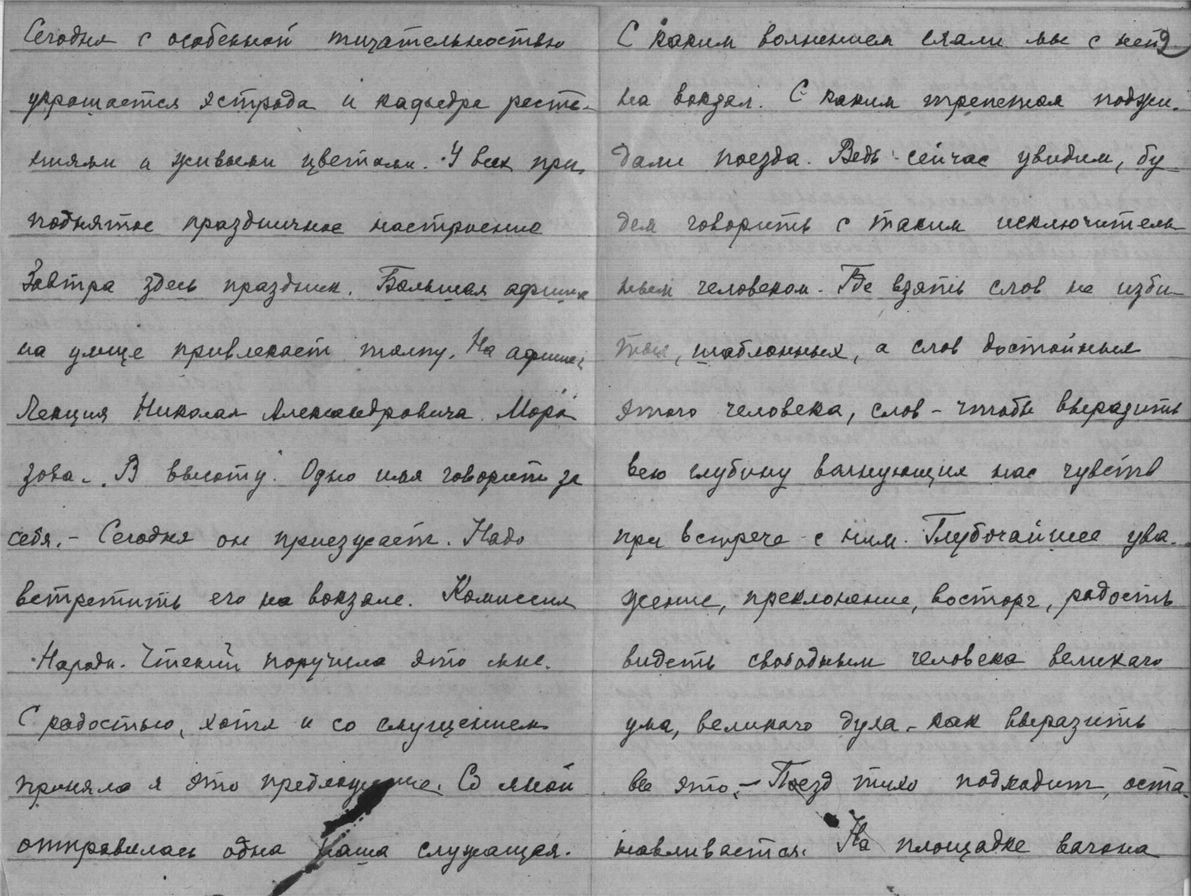 Сегодня с особенной тщательностью
украшается эстрада и кафедра расте-
ниями и живыми цветами. У всех при-
поднятое праздничное настроение
Завтра здесь праздник. Большая афиша
на улице привлекает толпу. На афише:
Лекция Николая Александровича Моро-
зова - "В высоту". Одно имя говорит за
себя. - Сегодня он приезжает. Надо
встретить его на вокзале. Комиссия
Народн. Чтений поручила это мне.
С радостью, хотя и со смущением
приняла я это предложение. Со мной
отправилась одна наша служащая.
2
С каким волнением ехали мы с ней
на вокзал. С каким трепетом поджи-
дали поезда. Ведь сейчас увидим, бу-
дем говорить с таким исключитель
ным человеком. Где взять слов не изби-
тых, шаблонных, а слов достойных
этого человека, слов - чтобы выразить
всю глубину волнующих нас чувств
при встрече с ним. Глубочайшее ува-
жение, преклонение, восторг, радость
видеть свободным человека великаго
ума, великаго духа, - как выразить
все это, - Поезд тихо подходит, оста-
навливается. На площадке вагона